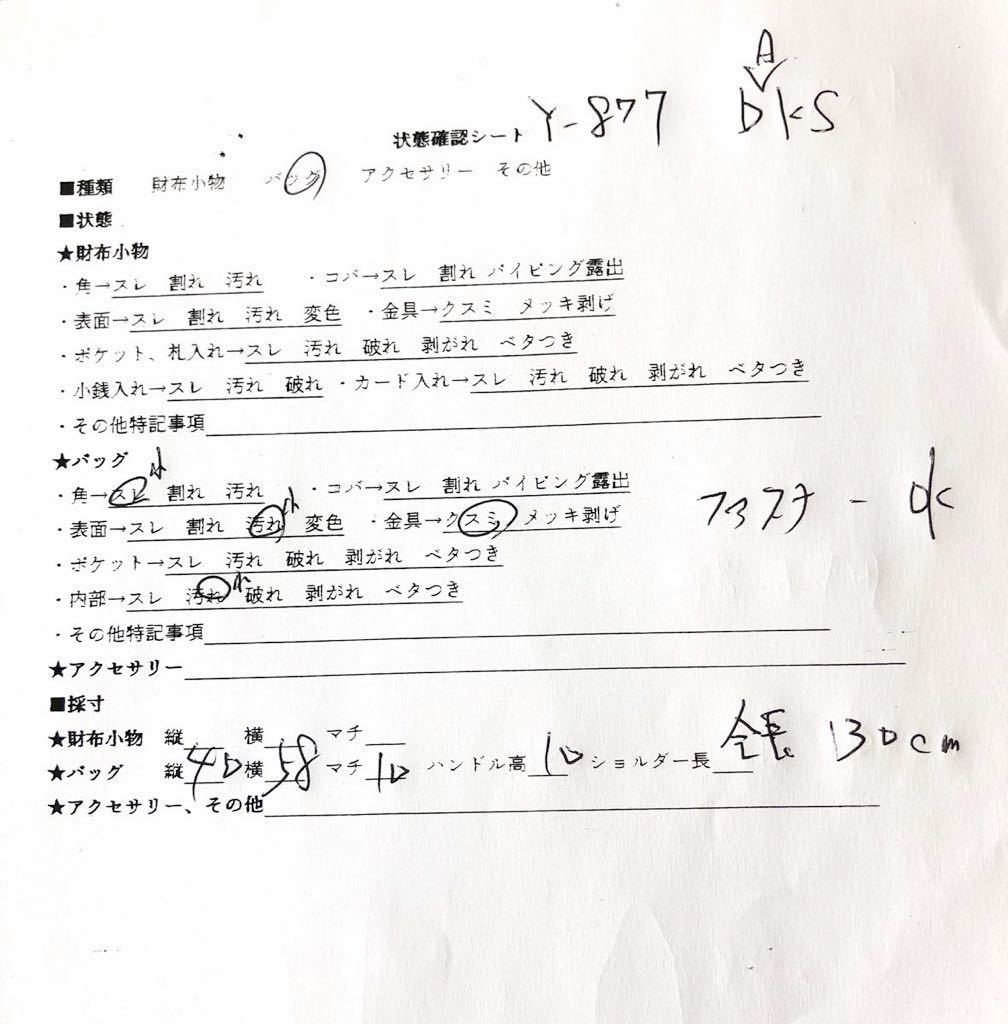 A
状態確認シート Y-877 DKS
■種類 財布小物 バッグ アクセサリー その他
■状態
★財布小物
・角→スレ 割れ 汚れ ・コバ→スレ 割れ パイピング露出
・表面→スレ 割れ 汚れ 変色 ・金具→クスミ メッキ剥げ
・ポケット、札入れ→スレ 汚れ 破れ 剥がれ ベタつき
・小銭入れ→スレ 汚れ 破れ ・カード入れ→スレ 汚れ 破れ 剥がれ ベタつき
・その他特記事項
★バッグ
小
・角→スレ 割れ 汚れ ・コバ→スレ 割れ パイピング露出
小
・表面→スレ 割れ 汚れ 変色 ・金具→クスミ メッキ剥げ ファスナー OK
・ポケット→スレ 汚れ 破れ 剥がれ ベタつき
小
・内部→スレ 汚れ 破れ 剥がれ ベタつき
・その他特記事項
★アクセサリー
■採寸
★財布小物 縦 横 マチ
★バッグ 縦40 横58 マチ10 ハンドル高10 ショルダー長 全長 130cm
★アクセサリー、その他